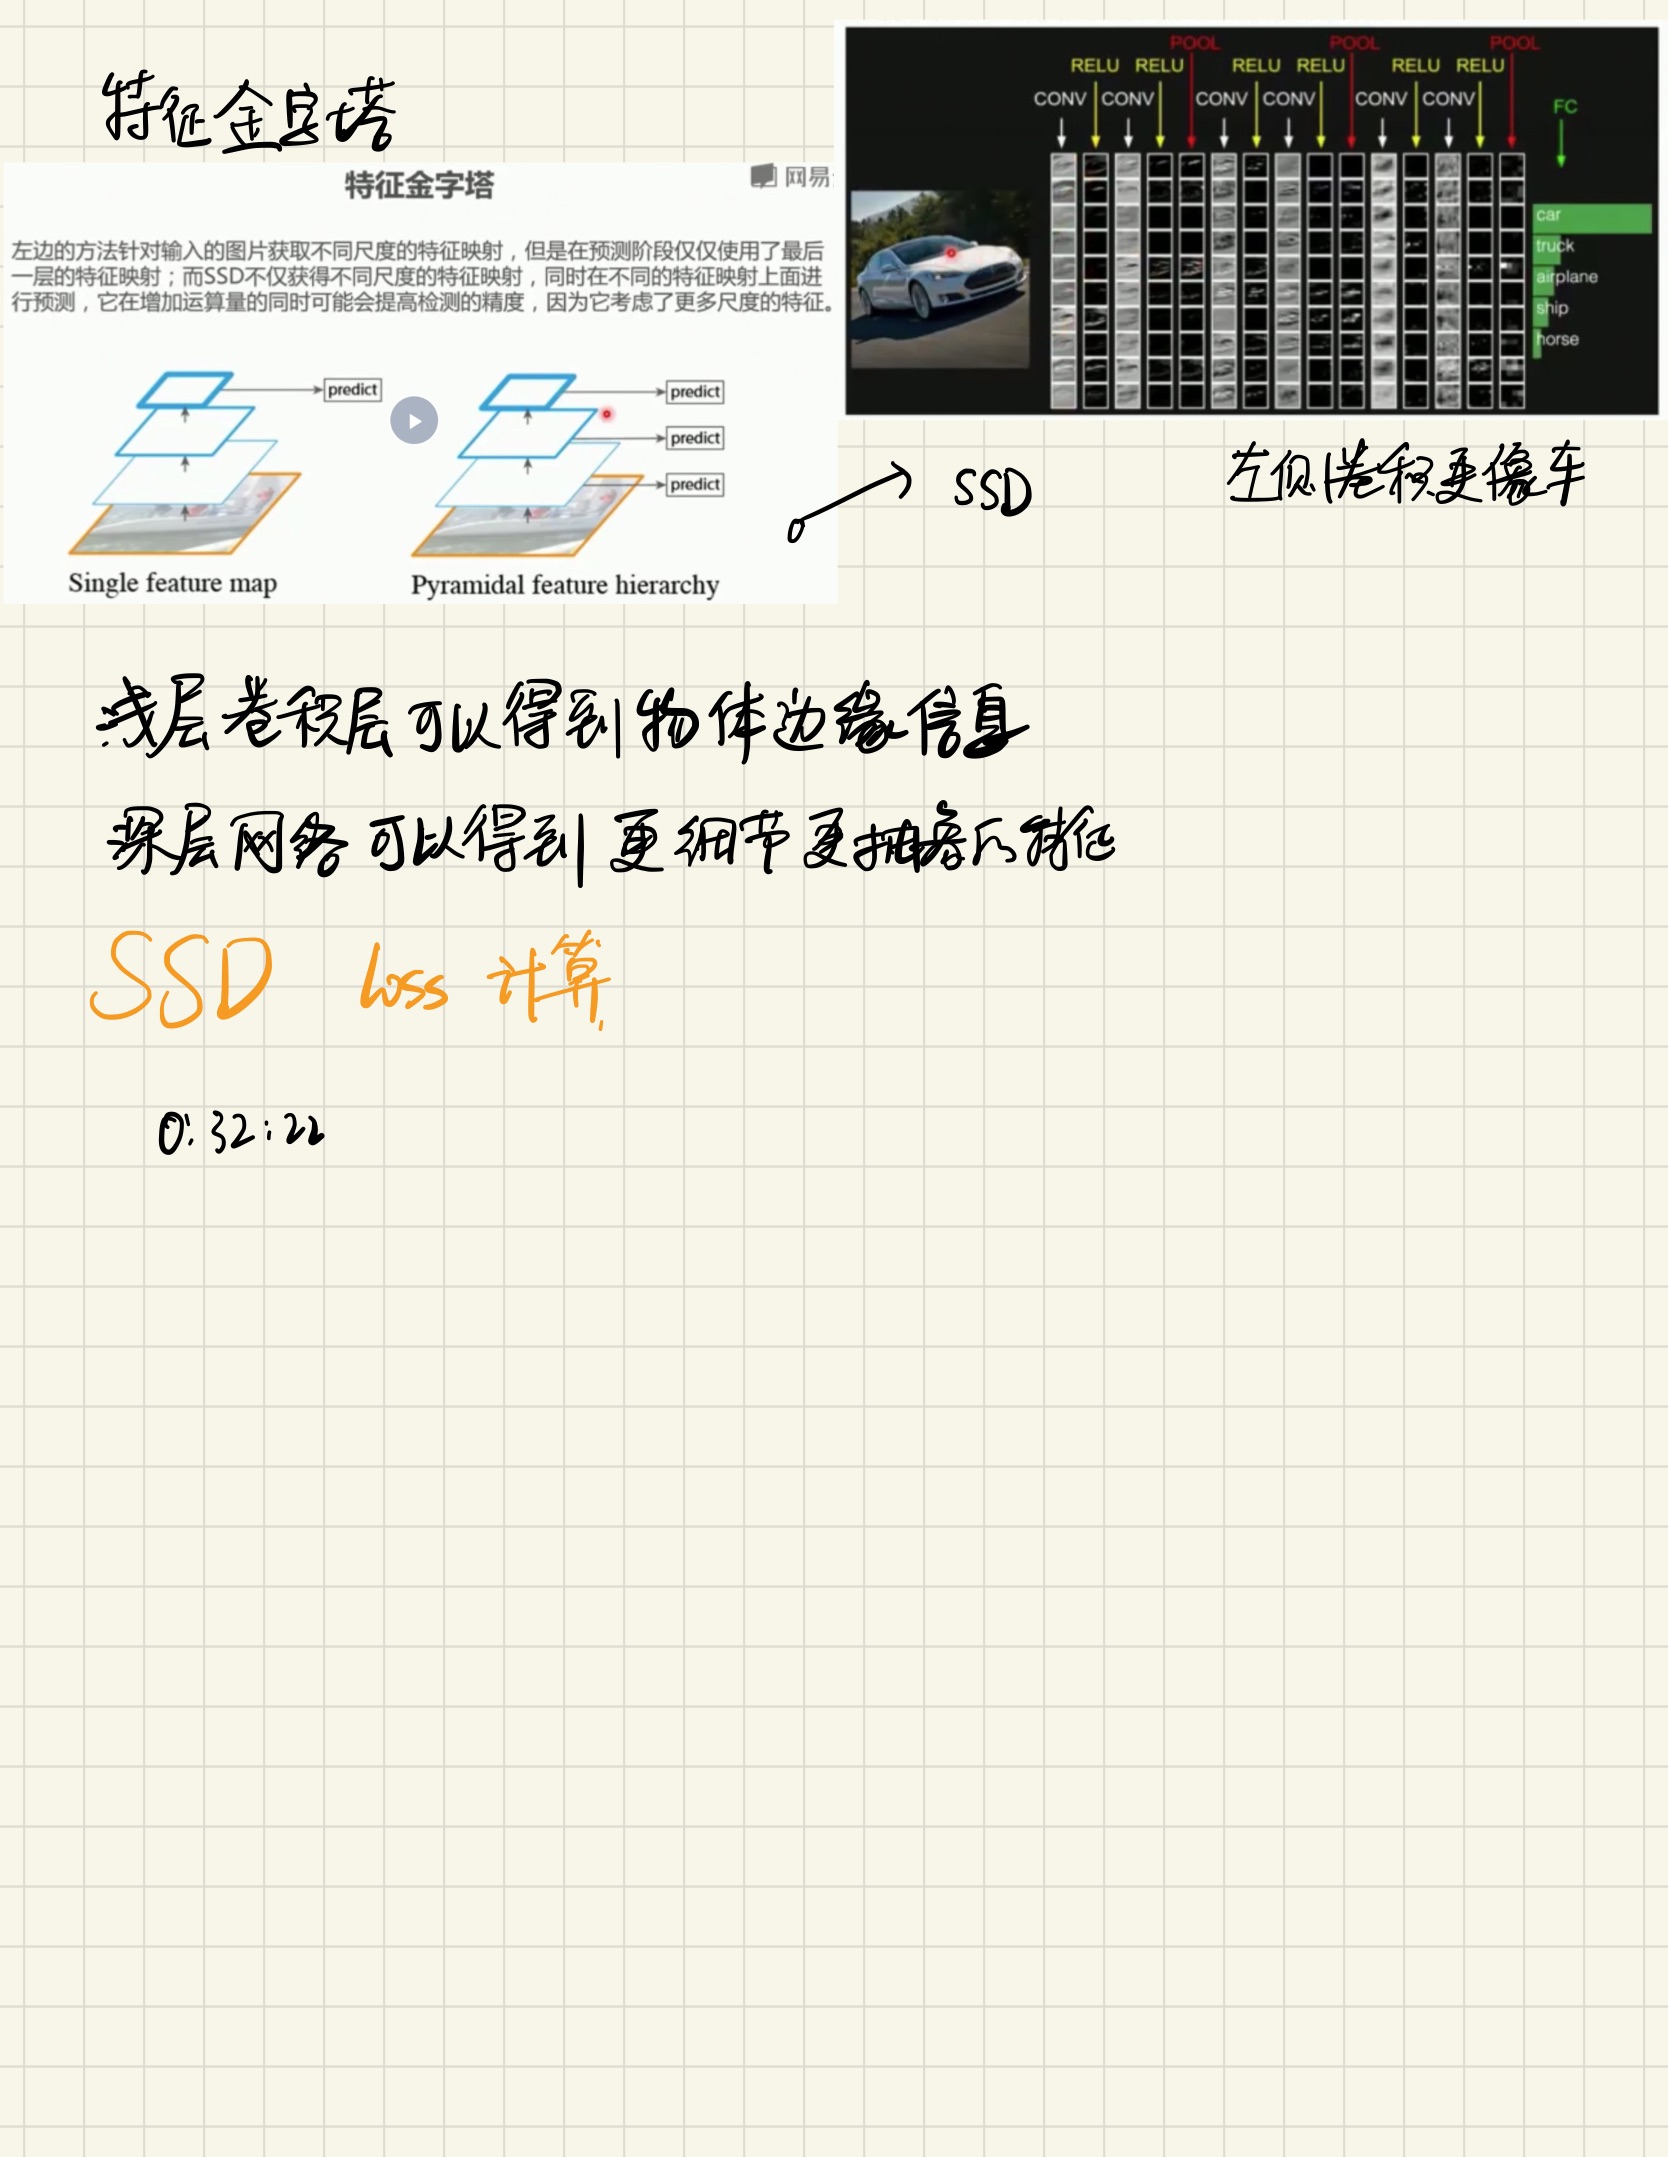 特征金字塔
特征金字塔
网易
左边的方法针对输入的图片获取不同尺度的特征映射，但是在预测阶段仅仅使用了最后
一层的特征映射；而SSD不仅获得不同尺度的特征映射，同时在不同的特征映射上面进
行预测，它在增加运算量的同时可能会提高检测的精度，因为它考虑了更多尺度的特征。
predict
predict
predict
predict
Single feature map
Pyramidal feature hierarchy
POOL POOL POOL
RELU RELU RELU RELU RELU RELU
CONV CONV CONV CONV CONV CONV
FC
car
truck
airplane
ship
horse
SSD
左侧卷积更像车
浅层卷积层可以得到物体边缘信息
深层网络可以得到更细节更抽象的特征
SSD Loss 计算
0:32:22